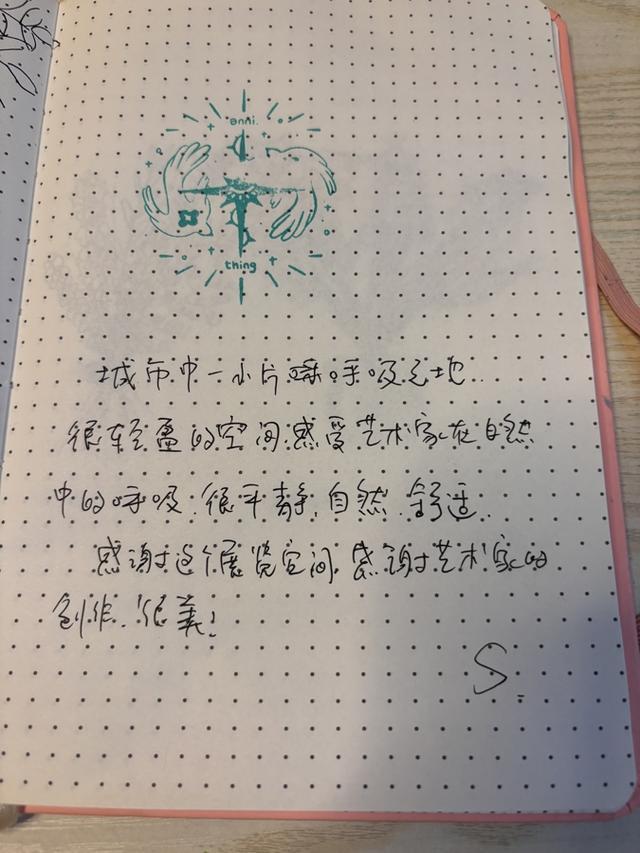 enni.
thing
城市中一小片呼吸之地.
很轻盈的空间.感受艺术家在自然
中的呼吸.很平静.自然.舒适.
感谢这个展览空间.感谢艺术家的
创作.很美!
S.